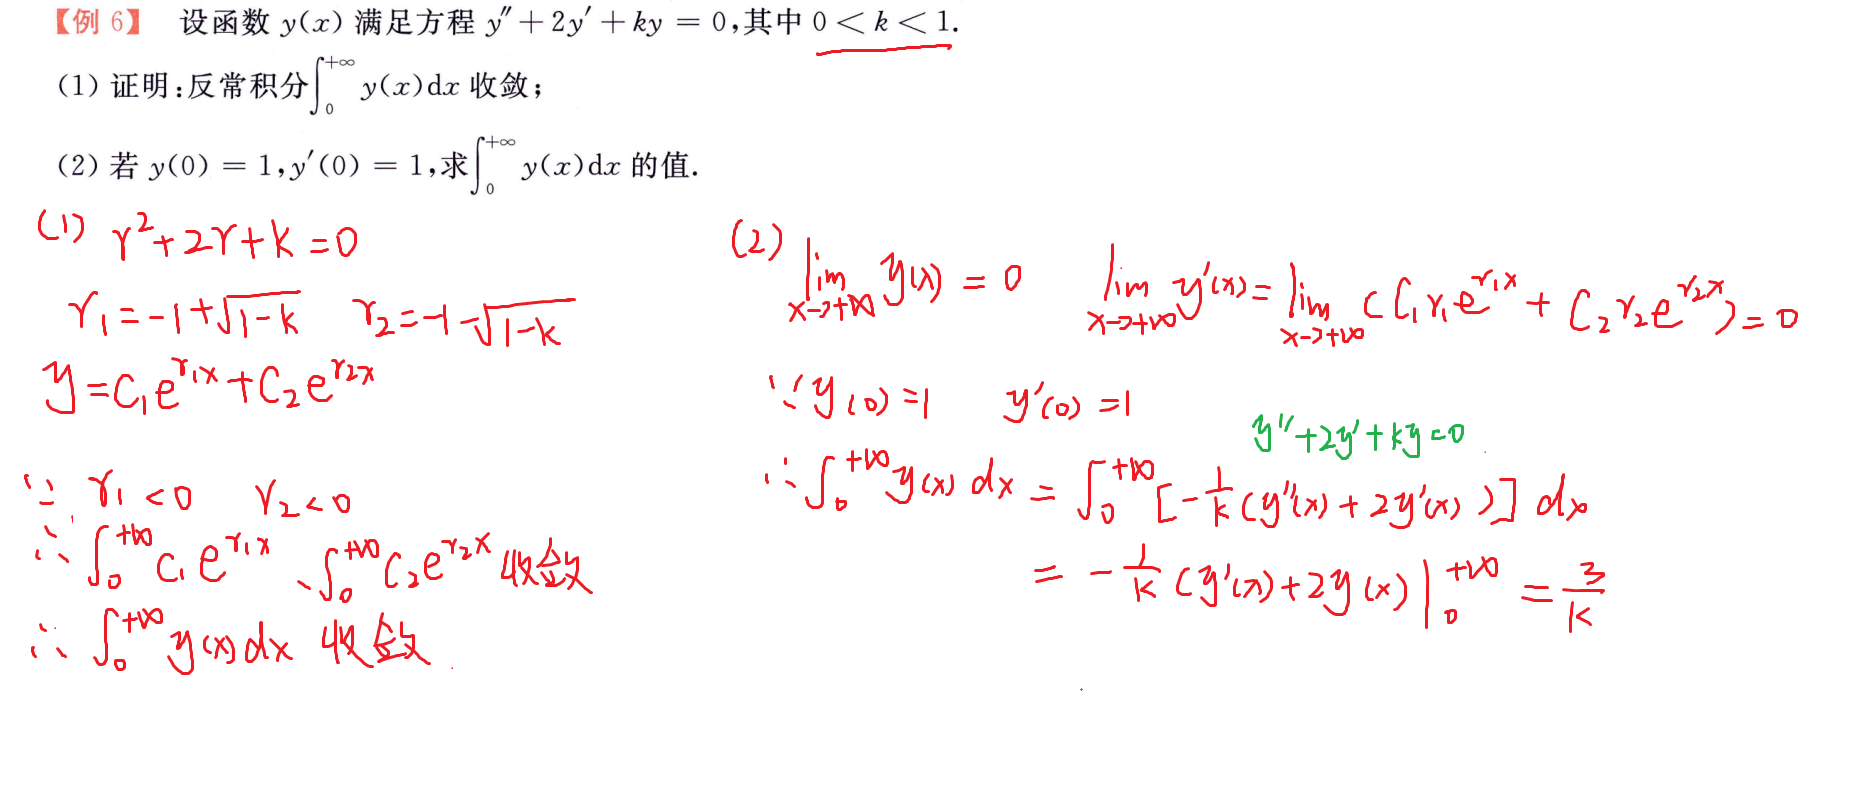 【例 6】 设函数 y(x) 满足方程 y″ + 2y′ + ky = 0,其中 0 < k < 1.
(1) 证明:反常积分∫₀^{+∞} y(x)dx 收敛;
(2) 若 y(0) = 1,y′(0) = 1,求∫₀^{+∞} y(x)dx 的值.
(1) r²+2r+k=0
r₁=-1+√(1-k) r₂=-1-√(1-k)
y=C₁e^{r₁x}+C₂e^{r₂x}
∵ r₁<0 r₂<0
∴ ∫₀^{+∞} C₁e^{r₁x}、∫₀^{+∞} C₂e^{r₂x} 收敛
∴ ∫₀^{+∞} y(x)dx 收敛
(2) lim_{x→+∞} y(x) = 0 lim_{x→+∞} y′(x) = lim_{x→+∞} (C₁r₁e^{r₁x} + C₂r₂e^{r₂x}) = 0
∵ y(0)=1 y′(0)=1
y″+2y′+ky=0
∴ ∫₀^{+∞} y(x) dx = ∫₀^{+∞} [-1/k (y″(x) + 2y′(x))] dx
= -1/k (y′(x)+2y(x)) |₀^{+∞} = 3/k